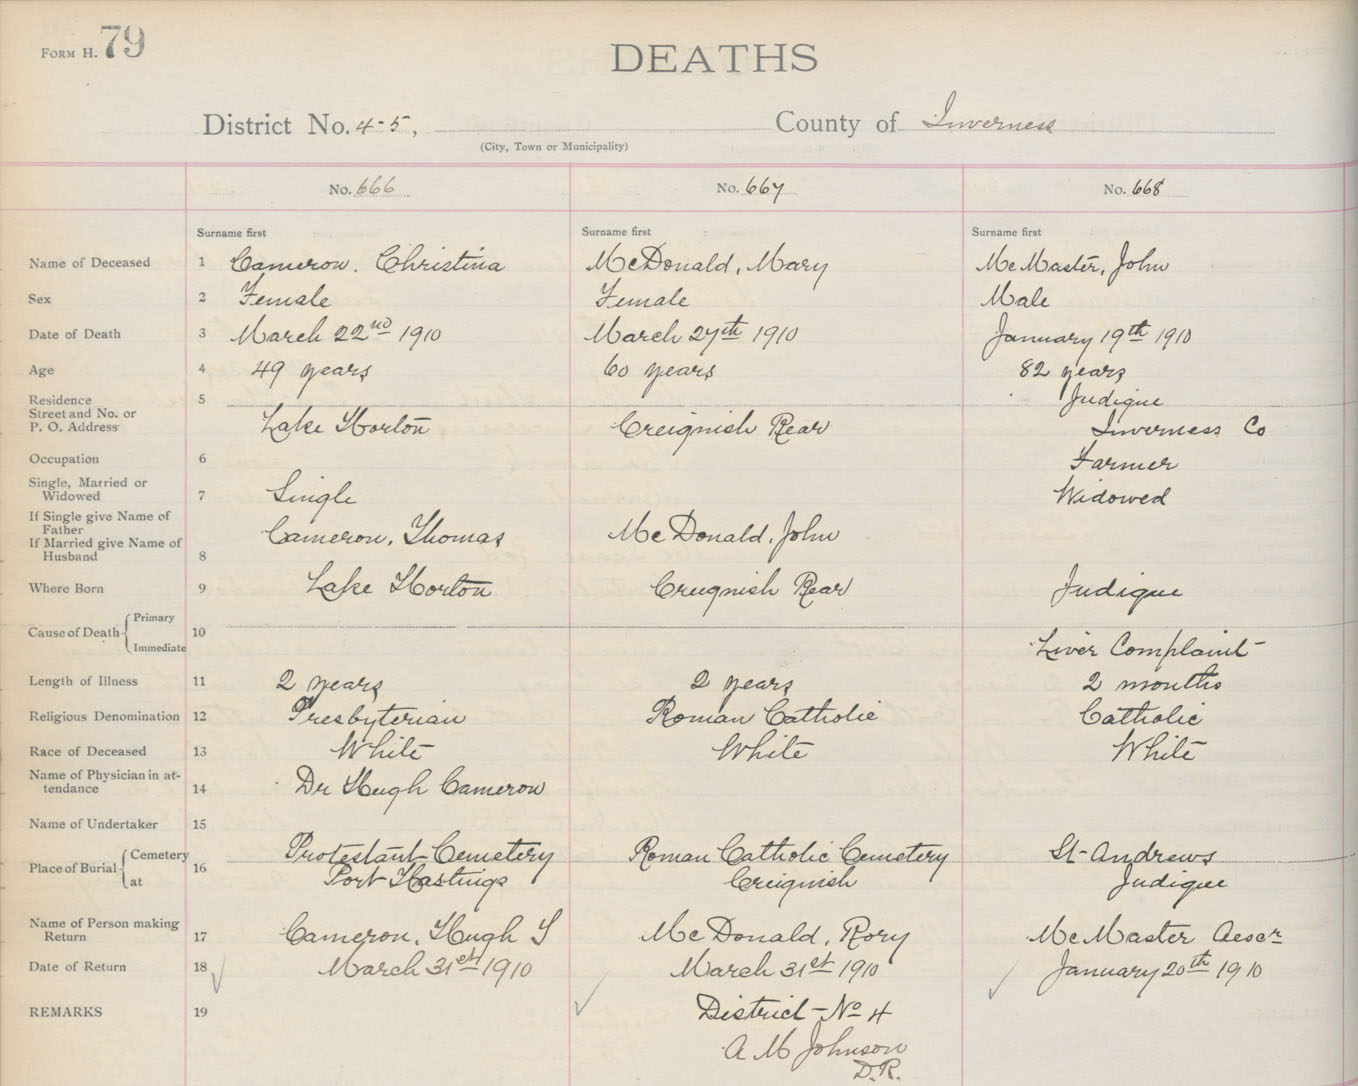 FORM H. 79
DEATHS
District No. 4-5, County of Inverness
(City, Town or Municipality)
No. 666 No. 667 No. 668
Surname first Surname first Surname first
Name of Deceased 1 Cameron. Christina McDonald, Mary McMaster, John
Sex 2 Female Female Male
Date of Death 3 March 22nd 1910 March 27th 1910 January 19th 1910
Age 4 49 years 60 years 82 years
Residence 5 Judique
Street and No. or
P. O. Address Lake Horton Creignish Rear Inverness Co
Occupation 6 Farmer
Single, Married or
Widowed 7 Single Widowed
If Single give Name of
Father
Cameron, Thomas McDonald, John
If Married give Name of
Husband 8
Where Born 9 Lake Horton Creignish Rear Judique
Cause of Death Primary 10
Immediate Liver Complaint
Length of Illness 11 2 years 2 years 2 months
Religious Denomination 12 Presbyterian Roman Catholic Catholic
Race of Deceased 13 White White White
Name of Physician in at-
tendance 14 Dr Hugh Cameron
Name of Undertaker 15
Place of Burial Cemetery 16 Protestant Cemetery Roman Catholic Cemetery St Andrews
at Port Hastings Creignish Judique
Name of Person making
Return 17 Cameron, Hugh McDonald, Rory McMaster
Date of Return 18 March 31st 1910 March 31st 1910 January 20th 1910
REMARKS 19 District No 4
A M Johnson
D.R.